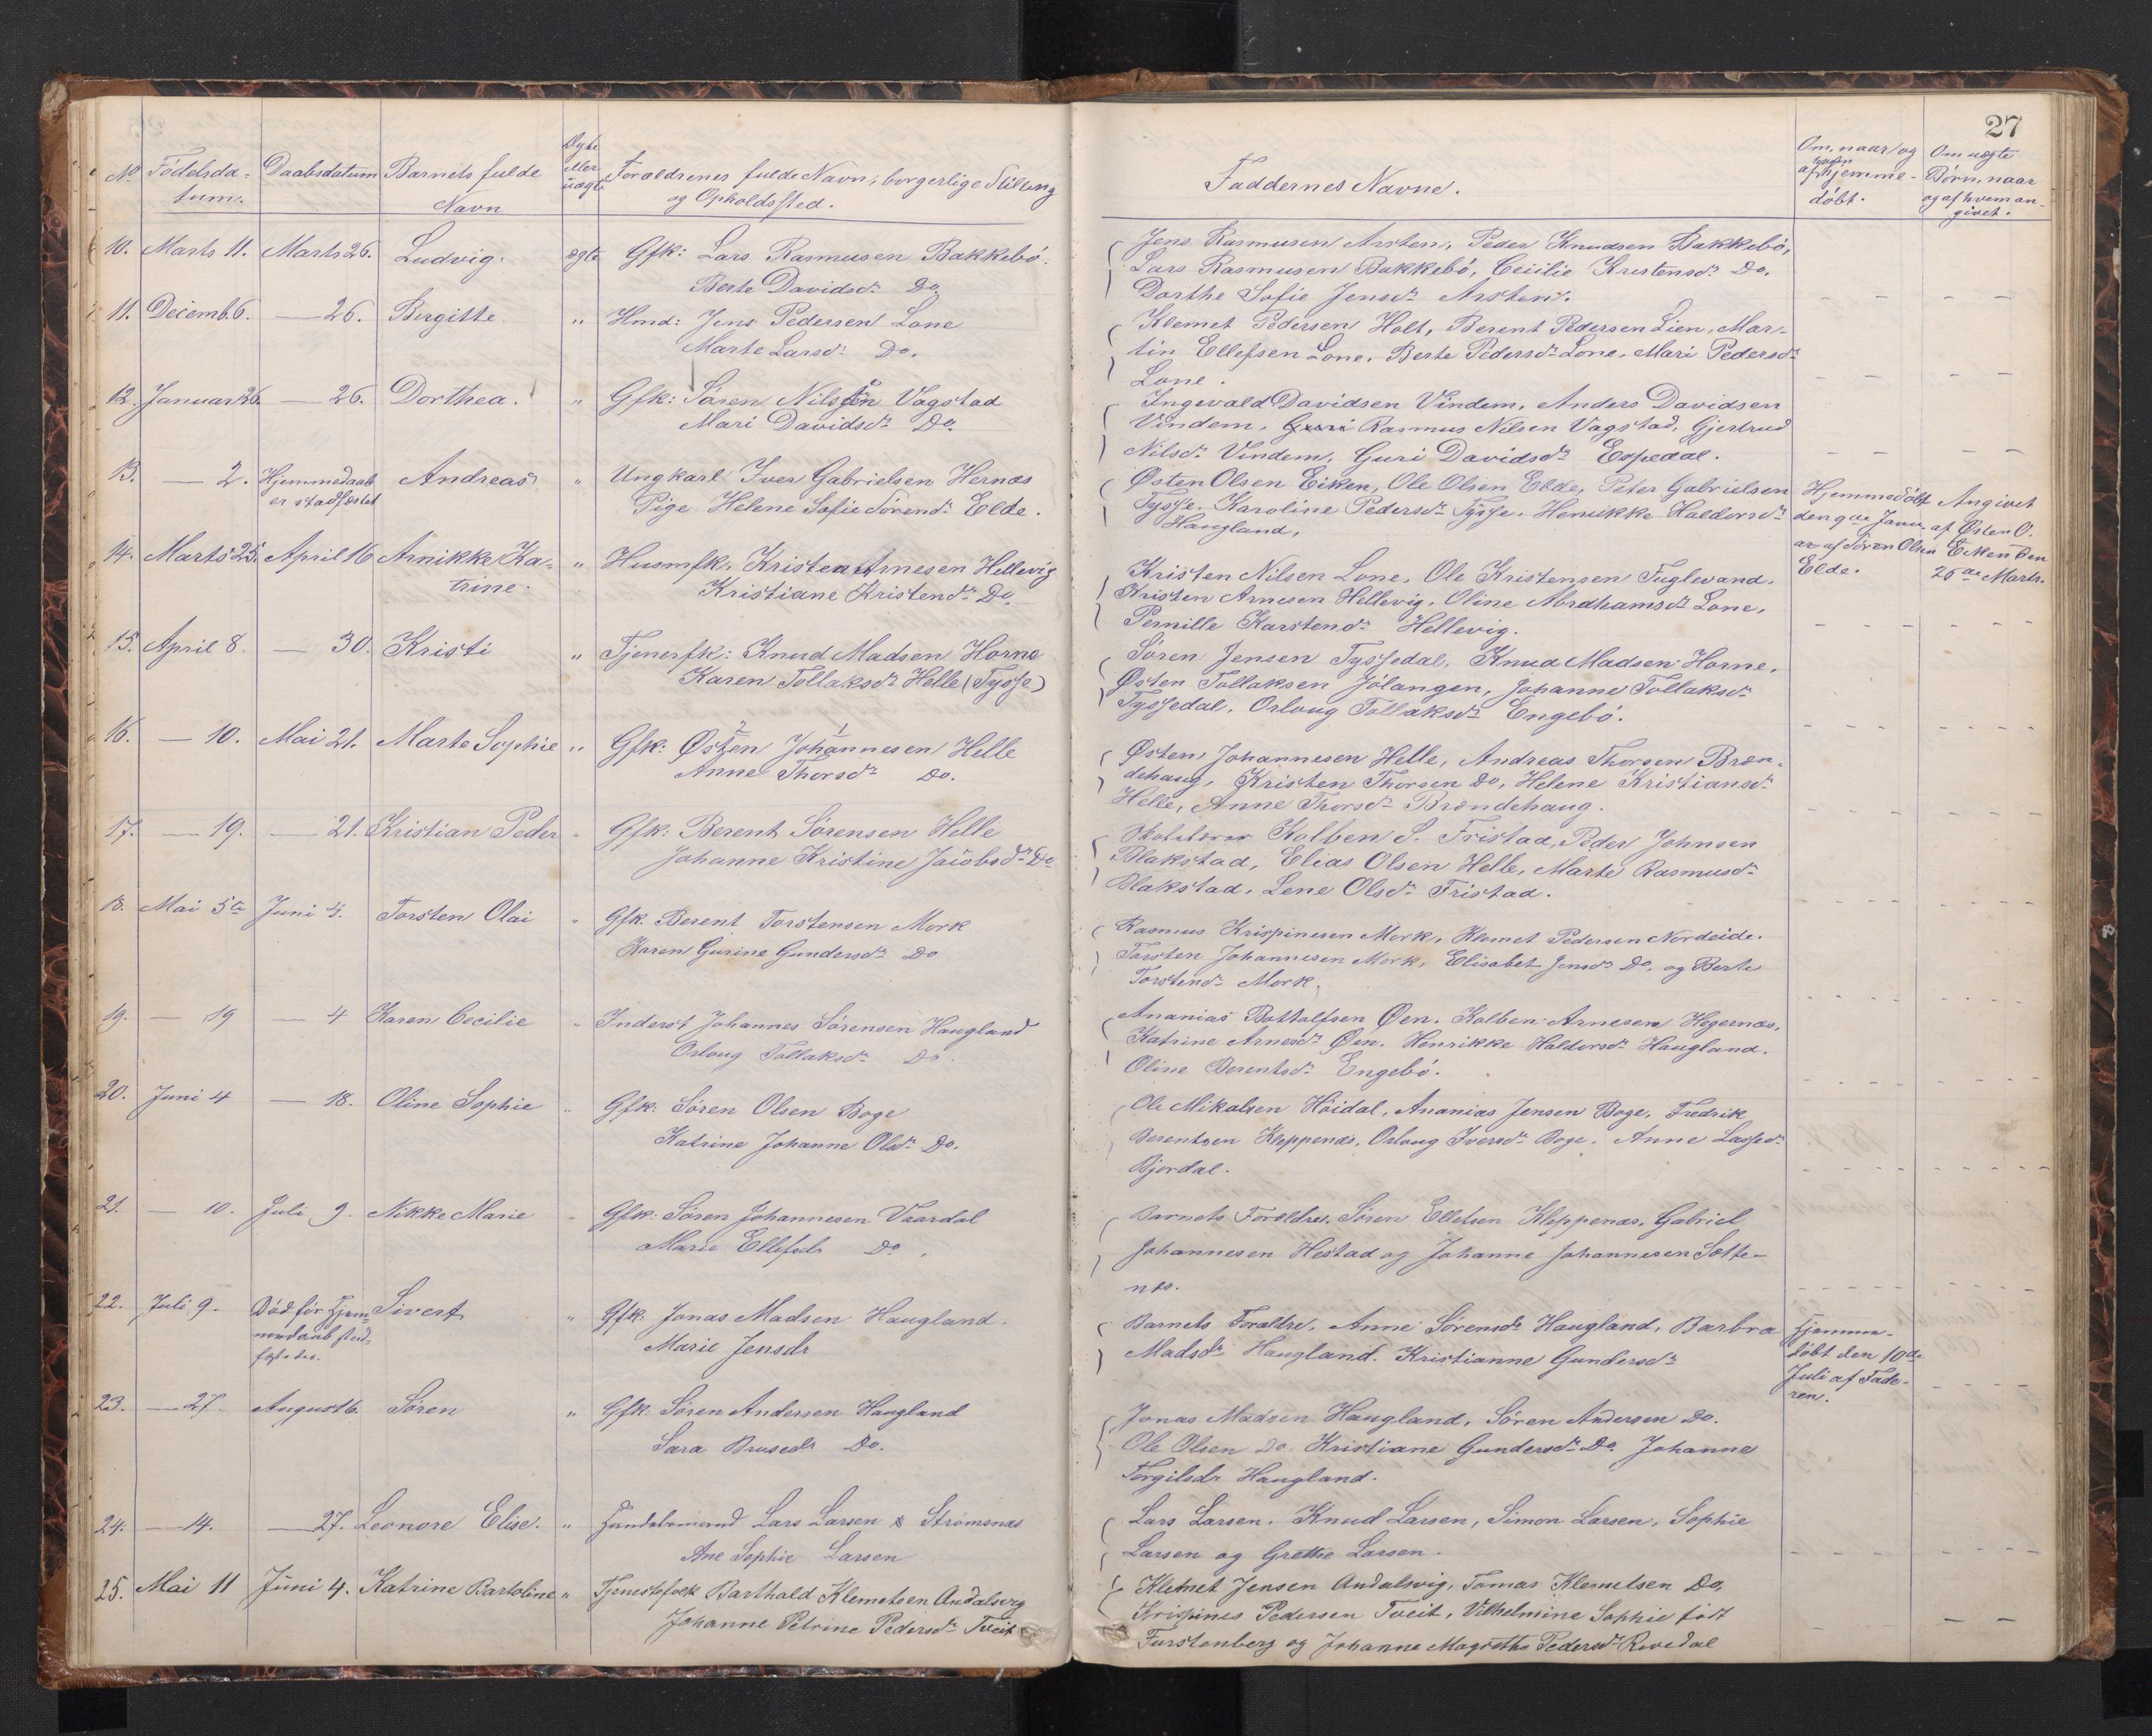 27
No Fødelsda-tum. Daabsdatum Barnets fulde Navn Ægte eller uægte Forældrenes fulde Navn, borgerlige Stilling og Opholdssted.
Faddernes Navne.
Om, naar og af hvem hjemme-døbt.
Om uægte Børn, naar og af hvem an-givet.
10. Marts 11. Marts 26. Ludvig. ægte Gfk: Lars Rasmusen Bakkebø.
Berte Davidsdr Do.
Jens Rasmusen Arsten, Peder Knudsen Bakkebø,
Lars Rasmusen Bakkebø, Cecilie Kristensdr Do.
Dorthe Sofie Jensdr Arsten.
11. Decemb. 6. — 26. Birgitte " Hmd: Jens Pedersen Lone
Marte Larsdr Do.
Klemet Pedersen Holt, Berent Pedersen Lien, Mar-
tin Ellefsen Lone, Berte Pedersdr Lone, Mari Pedersdr
Lone.
12. Januar 26. — 26. Dorthea. " Gfk: Søren Nilssen Vagstad
Mari Davidsdr Do.
Ingevald Davidsen Vindem, Anders Davidsen
Vindem, Guri Rasmus Nilsen Vagstad, Gjertrud
Nilsdr Vindem, Guri Davidsdr Espedal.
13. — 2. Hjemmedaab er stadfæstet Andreas " Ungkarl Iver Gabrielsen Hernæs
Pige Helene Sofie Sørendr Elde.
Østen Olsen Eiken, Ole Olsen Elde, Peter Gabrielsen
Tysse, Karoline Pedersdr Tysse, Henrikke Haldorsdr
Haugland,
Hjemmedøbt den 9de Janu-ar af Søren Olsen Elde.
Angivet af Østen O. Eiken den 26de Marts.
14. Marts 25. April 16 Arnikke Ka-trine. " Husmfk. Kristen Arnesen Hellevig
Kristiane Kristendr Do.
Kristen Nilsen Lone, Ole Kristensen Fuglevand,
Kristen Arnesen Hellevig, Oline Abrahamsdr Lone,
Pernille Karstendr Hellevig.
15. April 8. — 30. Kristi " Tjenerfk: Knud Madsen Horne
Karen Tollaksdr Helle (Tysse)
Søren Jensen Tyssedal, Knud Madsen Horne,
Østen Tollaksen Jølangen, Johanne Tollaksdr
Tyssedal, Orloug Tollaksdr Engebø.
16. — 10. Mai 21. Marte Sophie " Gfk: Østen Johannesen Helle
2 1
Anne Thorsdr Do.
Østen Johannesen Helle, Andreas Thorsen Bræn-
dehaug, Kristen Thorsen Do, Helene Kristiansdr
Helle, Anne Thorsdr Brændehaug.
17. — 19. — 21. Kristian Peder " Gfk: Berent Sørensen Helle
Johanne Kristine Jacobsdr Do
Kolben S. Fristad, Peder Johnsen
Blakstad, Elias Olsen Helle, Marte Rasmusdr
Blakstad, Lene Olsdr Fristad.
18. Mai 5te Juni 4. Torsten Olai " Gfk. Berent Torstensen Mork
Karen Gurine Gundersdr Do
Rasmus Krispinesen Mork, Klemet Pedersen Nordeide.
Torsten Johannesen Mork, Elisabet Jensdr Do, og Berte
Torstendr Mork.
19. — 19 — 4 Karen Cecilie " Inderst Johannes Sørensen Haugland
Orloug Tollaksdr Do.
Ananias Bottolfsen Øen, Kolben Arnesen Hegernæs,
Katrine Arnesdr Øen, Henrikke Haldorsdr Haugland.
Oline Berentsdr Engebø.
20. Juni 4 — 18. Oline Sophie " Gfk: Søren Olsen Boge
Katrine Johanne Olsdr Do.
Ole Mikalsen Høidal, Ananias Jensen Boge, Fredrik
Berentsen Kleppenæs, Orloug Iversdr Boge, Anne Lassedr
Bjordal.
21. — 10. Juli 9. Nikke Marie " Gfk: Søren Johannesen Vaardal
Marie Ellefsdr Do.
Barnets Forældre, Søren Ellefsen Kleppenæs, Gabriel
Johannesen Hestad og Johanne Johannesen Sætte-
næs.
22. Juli 9. Død før Hjem-medaab stad-fæstedes. Sivert " Gfk: Jonas Madsen Haugland.
Marie Jensdr
Barnets Forældre, Anne Sørensdr Haugland, Barbra
Madsdr Haugland. Kristianne Gundersdr
Hjemme-døbt den 10de Juli af Fade-ren.
23. — 27 August 6. Søren " Gfk: Søren Andersen Haugland
Sara Brusedr Do.
Jonas Madsen Haugland, Søren Andersen Do.
Ole Olsen Do. Kristiane Gundersdr Do. Johanne
Torgilsdr Haugland.
24. — 14. — 27. Leonore Elise. " Handelsmand Lars Larsen Strømsnæs
Ane Sophie Larsen
Lars Larsen, Knud Larsen, Simon Larsen, Sophie
Larsen og Grethe Larsen.
25. Mai 11 Juni 4. Katrine Bartoline " Tjenestefolk Barthald Klemetsen Andalsvig
Johanne Petrine Pedersdr Tveit
Klemet Jensen Andalsvig, Tomas Klemetsen Do,
Krispines Pedersen Tveit, Vilhelmine Sophie født
Furstenberg og Johanne Magrethe Pedersdr Rivedal